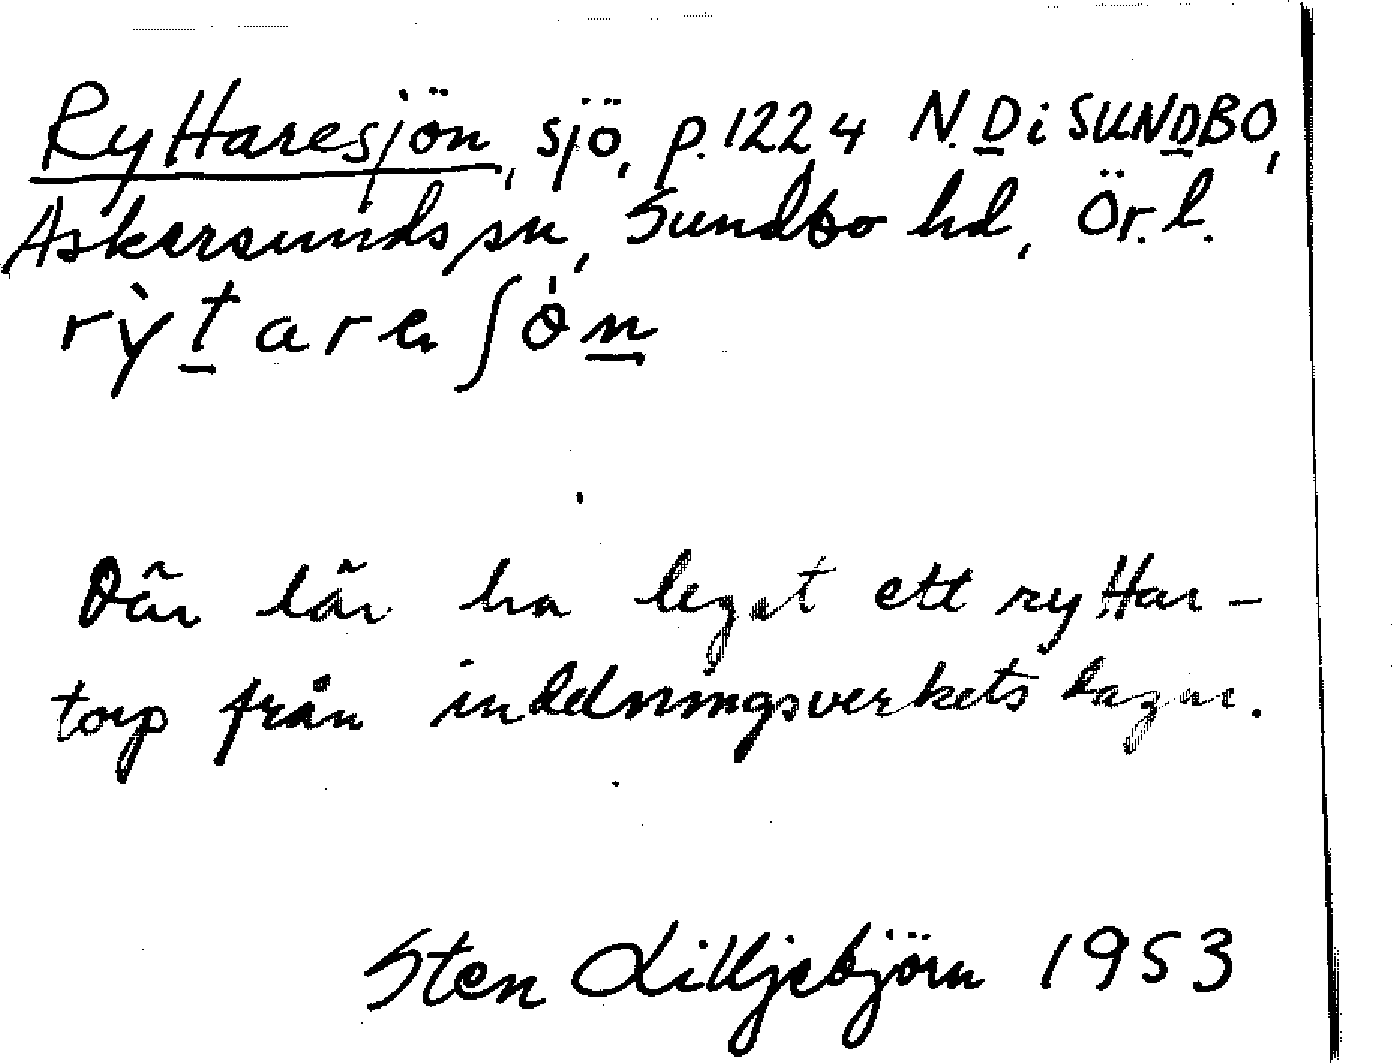 Ryttaresjön, sjö, p. 1224 N. D i SUNDBO,
Askersunds sn, Sundbo hd, Ör. l.
rỳtare ʃön
Där lär ha legat ett ryttar-
torp från indelningsverkets dagar.
Sten Lilljebjörn 1953